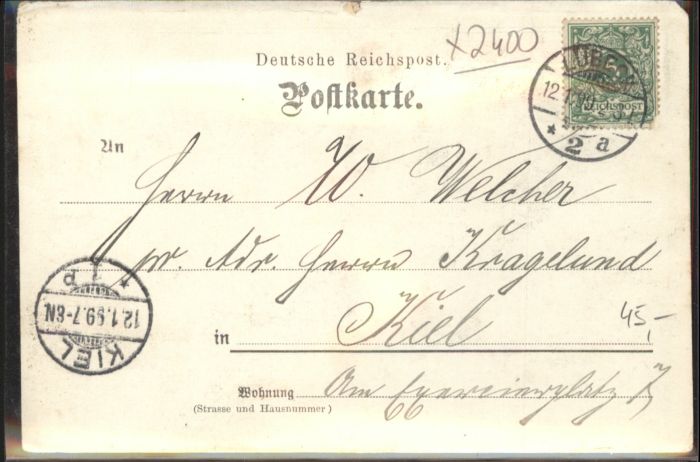 x2400
Deutsche Reichspost.
Postkarte.
LÜBECK
12.1.99
REICHSPOST
* 2a
An
Herrn W. Welcher
pr. Adr. Herrn Kragelund
in Kiel
45,-
Wohnung Am Exercierplatz 7
(Strasse und Hausnummer)
KIEL
12.1.99.7-8N